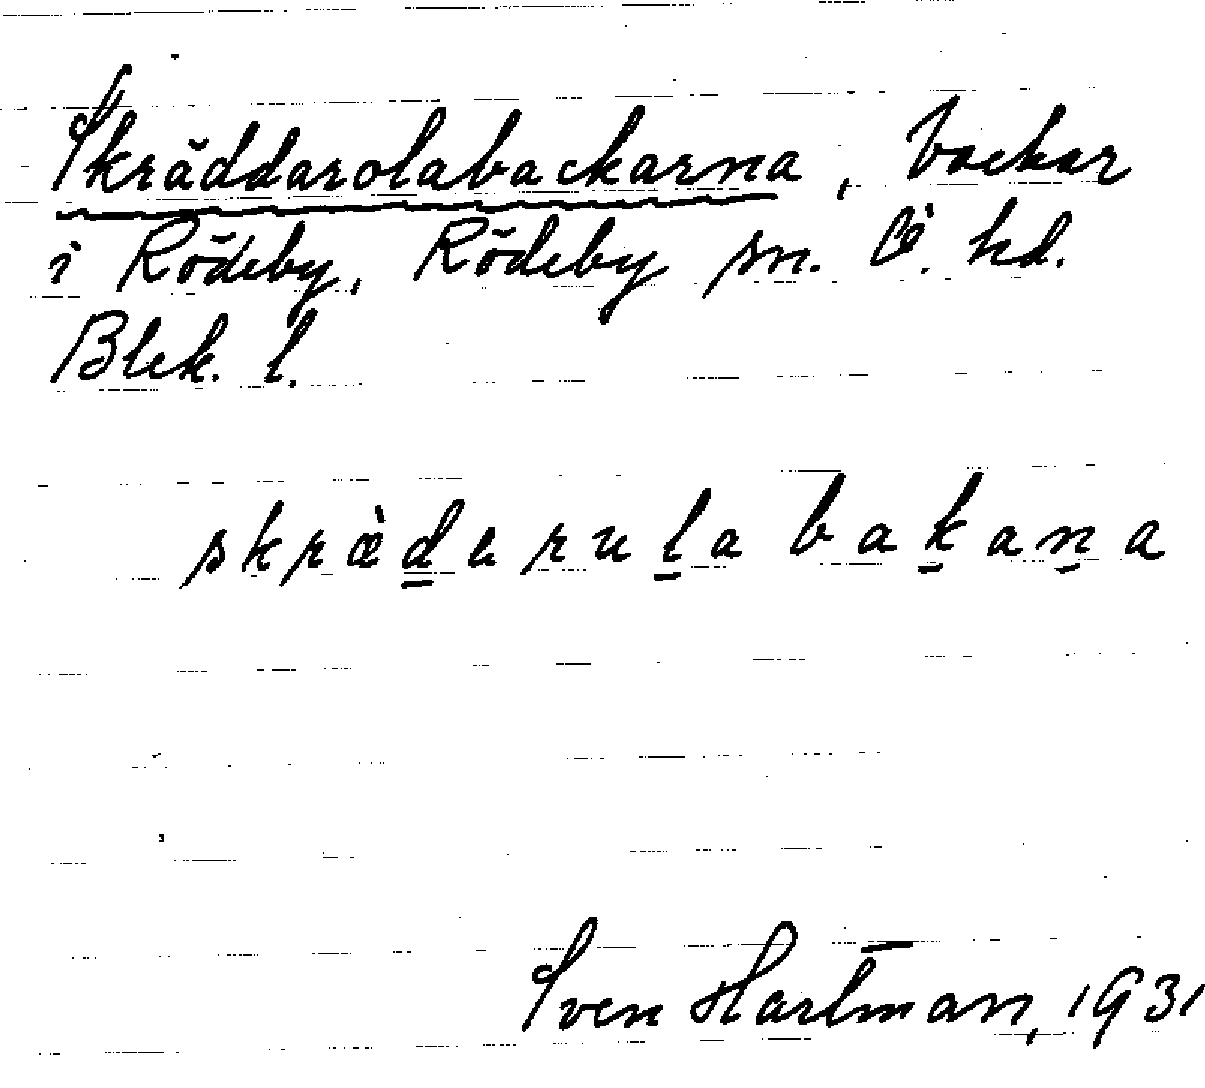 Skräddarolabackarna, backar
i Rödeby, Rödeby sn. Ö. hd.
Blek. l.
skræderulabakana
Sven Hartman, 1931